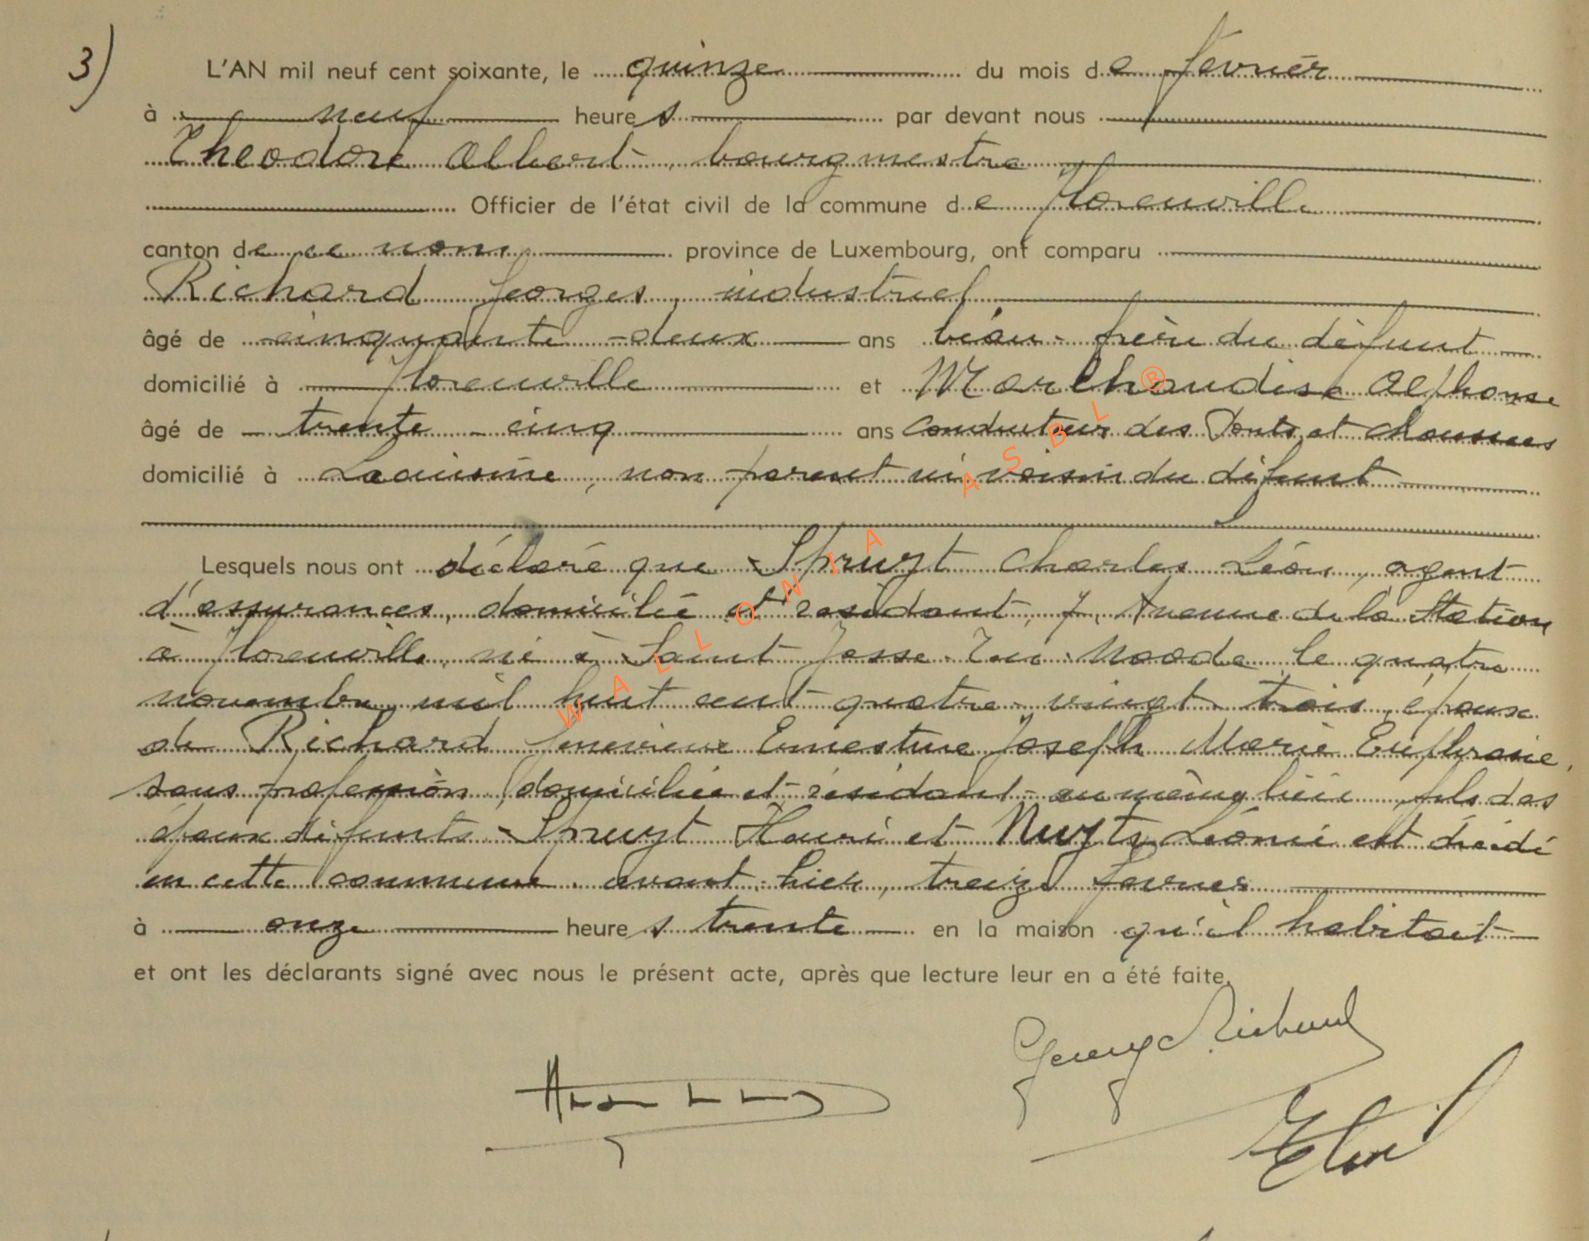 3)
L'AN mil neuf cent soixante, le quinze du mois de février
à neuf heures par devant nous
Theodore Albert, bourgmestre
Officier de l'état civil de la commune de Florenville
canton de ce nom province de Luxembourg, ont comparu
Richard Georges, industriel
âgé de cinquante-deux ans beau-frère du défunt
domicilié à Florenville et Marchandise Alphonse
âgé de trente-cinq ans conducteur des Ponts et chaussées
domicilié à Lacuisine, non parent ni voisin du défunt
Lesquels nous ont déclaré que Spruyt Charles Léon, agent
d'assurances, domicilié et résidant, 7, Avenue de la Station
à Florenville, né à Saint Josse-Ten-Noode le quatre
novembre mil huit cent quatre-vingt-trois, époux
de Richard Ernestine Joseph Marie Euphrasie,
sans profession, domiciliée et résidant en même lieu fils des
époux défunts Spruyt Henri et Nuyts Léonie est décédé
en cette commune avant-hier, treize février
à onze heures trente en la maison qu'il habitait
et ont les déclarants signé avec nous le présent acte, après que lecture leur en a été faite.
Georges Richard
WALLONIA ASBL ®